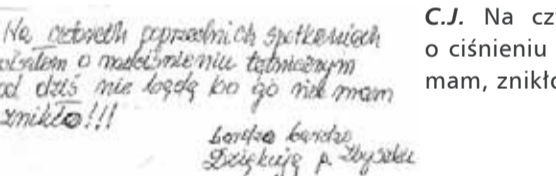 Na czterech poprzednich spotkaniach
pisałem o nadciśnieniu tętniczym
od dziś nie będę bo go nie mam
znikło!!!
bardzo bardzo
Dziękuję p. Zbyszku
C.J. Na cz
o ciśnieniu
mam, znikło